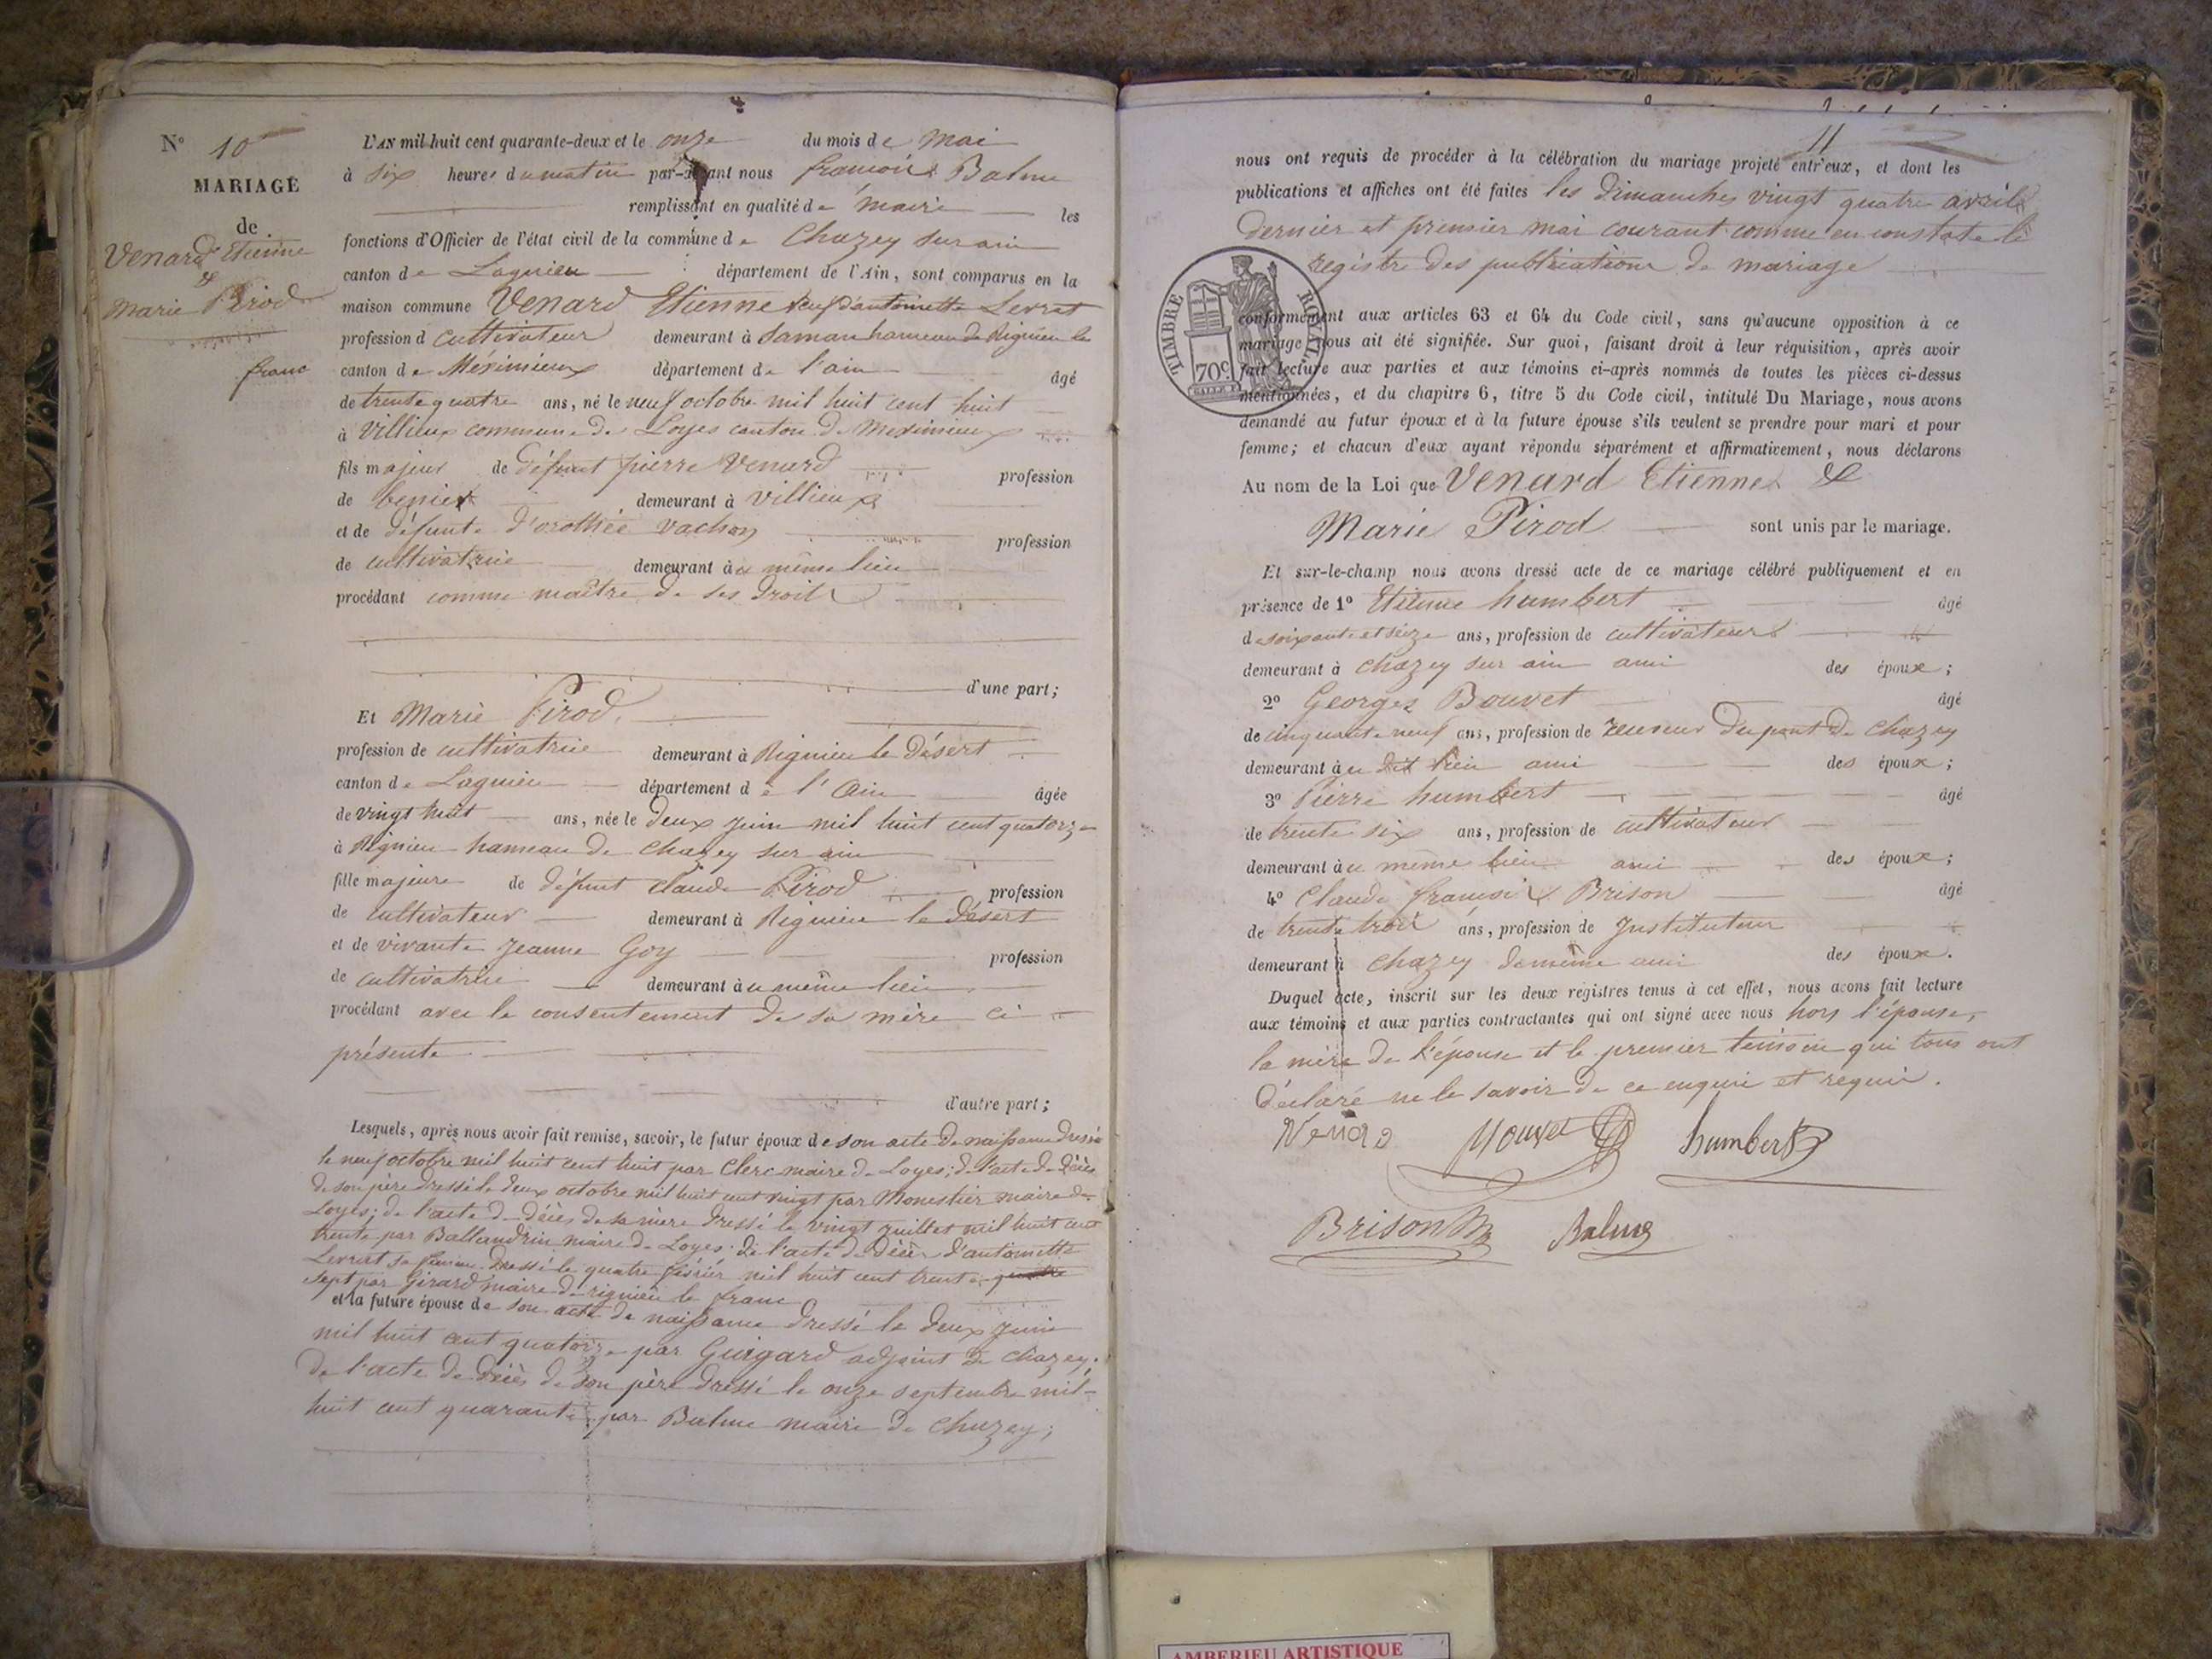 N° 10
MARIAGE
de
Venard Etienne
&
Marie Pirod
franc
L'AN mil huit cent quarante-deux et le onze du mois de Mai
à six heures du matin par-devant nous françois Balme
remplissant en qualité de maire les
fonctions d'Officier de l'état civil de la commune de Chazey sur ain
canton de Lagnieu département de l'Ain, sont comparus en la
maison commune Venard Etienne veuf d'antoinette Levrat
profession d cultivateur demeurant à Samans hameau de Rignieu le
canton de Méximieux département de l'ain âgé
de trente quatre ans, né le neuf octobre mil huit cent huit
à Villieux commune de Loyes canton de Meximieux
fils majeur de défunt pierre Venard profession
de demeurant à Villieux
et de défunte d'orothée vachon profession
de cultivatrice demeurant au même lieu
procédant comme maître de ses droits
d'une part;
Et Marie Pirod
profession de cultivatrice demeurant à Rignieu le Désert
canton de Lagnieu département de l'Ain âgée
de vingt huit ans, née le deux juin mil huit cent quatorze
à Rignieu hameau de Chazey sur ain
fille majeure de défunt claude Pirod profession
de cultivateur demeurant à Rignieu le Désert
et de vivante Jeanne Goy profession
de cultivatrice demeurant au même lieu
procédant avec le consentement de sa mère ci
présente
d'autre part;
Lesquels, après nous avoir fait remise, savoir, le futur époux de son acte de naissance dressé
le neuf octobre mil huit cent huit par Clerc maire de Loyes; de l'acte de décès
de son père dressé le deux octobre mil huit cent vingt par Monestier maire de
Loyes; de l'acte de décès de sa mère dressé le vingt juillet mil huit cent
trente par Ballandrin maire de Loyes; de l'acte de décès d'antoinette
Levrat sa femme dressé le quatre février mil huit cent trente quatre
sept par Girard maire de rignieu le franc
et la future épouse de son acte de naissance dressé le deux juin
mil huit cent quatorze par Guigard adjoint de chazey;
de l'acte de décès de son père dressé le onze septembre mil
huit cent quarante par Balme maire de Chazey;
11
nous ont requis de procéder à la célébration du mariage projeté entr'eux, et dont les
publications et affiches ont été faites les dimanches vingt quatre avril
dernier et premier mai courant comme en constate le
registre des publications de mariage
TIMBRE ROYAL
70c
conformément aux articles 63 et 64 du Code civil, sans qu'aucune opposition à ce
mariage nous ait été signifiée. Sur quoi, faisant droit à leur réquisition, après avoir
fait lecture aux parties et aux témoins ci-après nommés de toutes les pièces ci-dessus
mentionnées, et du chapitre 6, titre 5 du Code civil, intitulé Du Mariage, nous avons
demandé au futur époux et à la future épouse s'ils veulent se prendre pour mari et pour
femme; et chacun d'eux ayant répondu séparément et affirmativement, nous déclarons
Au nom de la Loi que Venard Etienne &
Marie Pirod sont unis par le mariage.
Et sur-le-champ nous avons dressé acte de ce mariage célébré publiquement et en
présence de 1° Etienne humbert âgé
de soixante et seize ans, profession de cultivateur
demeurant à chazey sur ain ami des époux;
2° Georges Bouvet âgé
de cinquante neuf ans, profession de receveur du pont de chazey
demeurant au dit lieu ami des époux;
3° Pierre humbert âgé
de trente six ans, profession de cultivateur
demeurant au même lieu ami des époux;
4° Claude françois Brison âgé
de trente trois ans, profession de Instituteur
demeurant à chazey de même ami des époux.
Duquel acte, inscrit sur les deux registres tenus à cet effet, nous avons fait lecture
aux témoins et aux parties contractantes qui ont signé avec nous hors l'épouse,
la mère de l'épouse et le premier témoin qui tous ont
déclaré ne le savoir de ce enquis et requis.
Venard Bouvet humbert
Brison Balme
AMBERIEU ARTISTIQUE